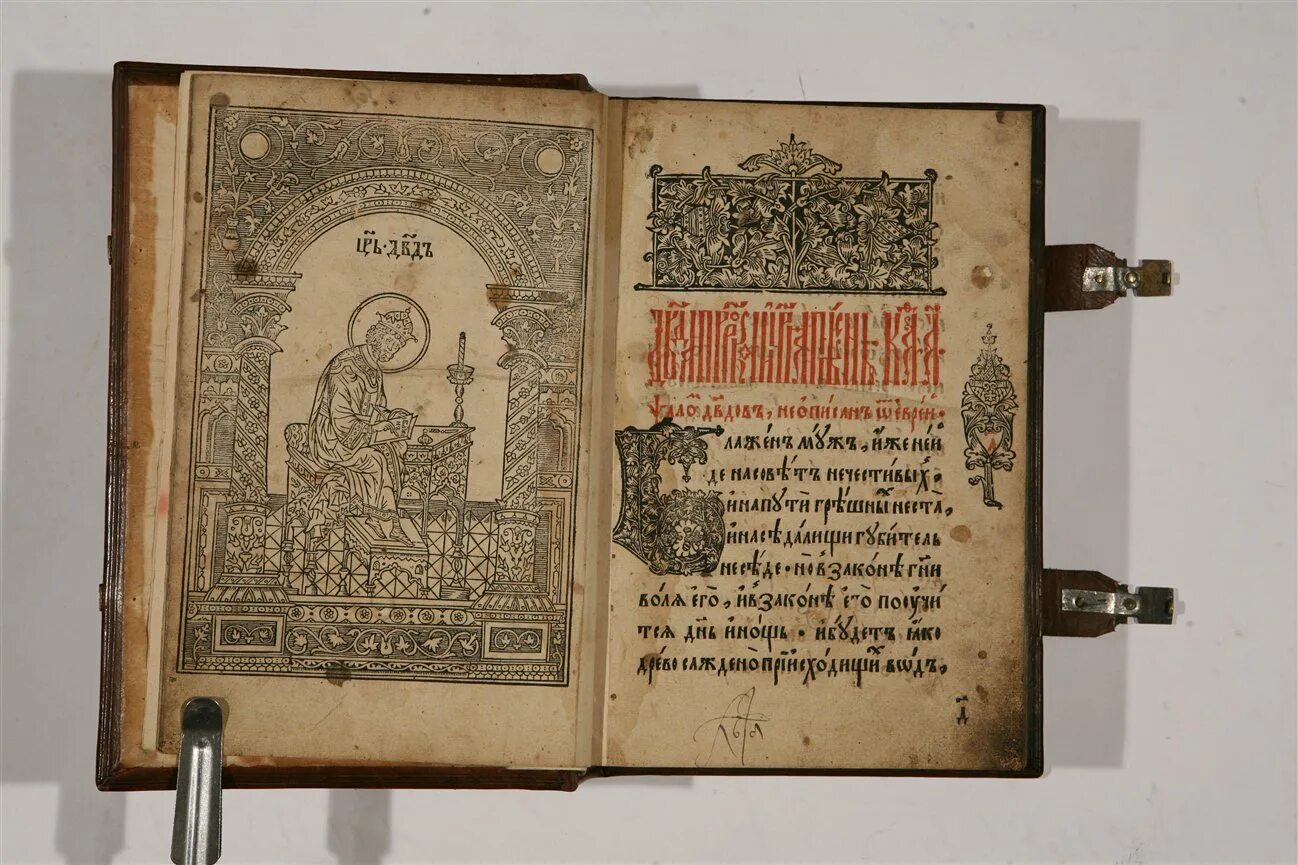 цр҃ь · дв҃дъ
дв҃да прⷪ҇рока и цр҃ѧ пѣснь · каѳ҇ · а҃ ·
ѱало҇ дв҃довъ, не ѡписанъ ѿ еврей ·
Блаженъ мужъ, иже не й
де на совѣтъ нечестивых ·
и на пути грѣшны не ста,
и на сѣдалищи губитель
не сѣде · но в законѣ гн҃и
волѧ его, и в законѣ его поучи
тсѧ дн҃ь и нощь · и будетъ ꙗко
древо сажено при исходищи водъ,
д҃